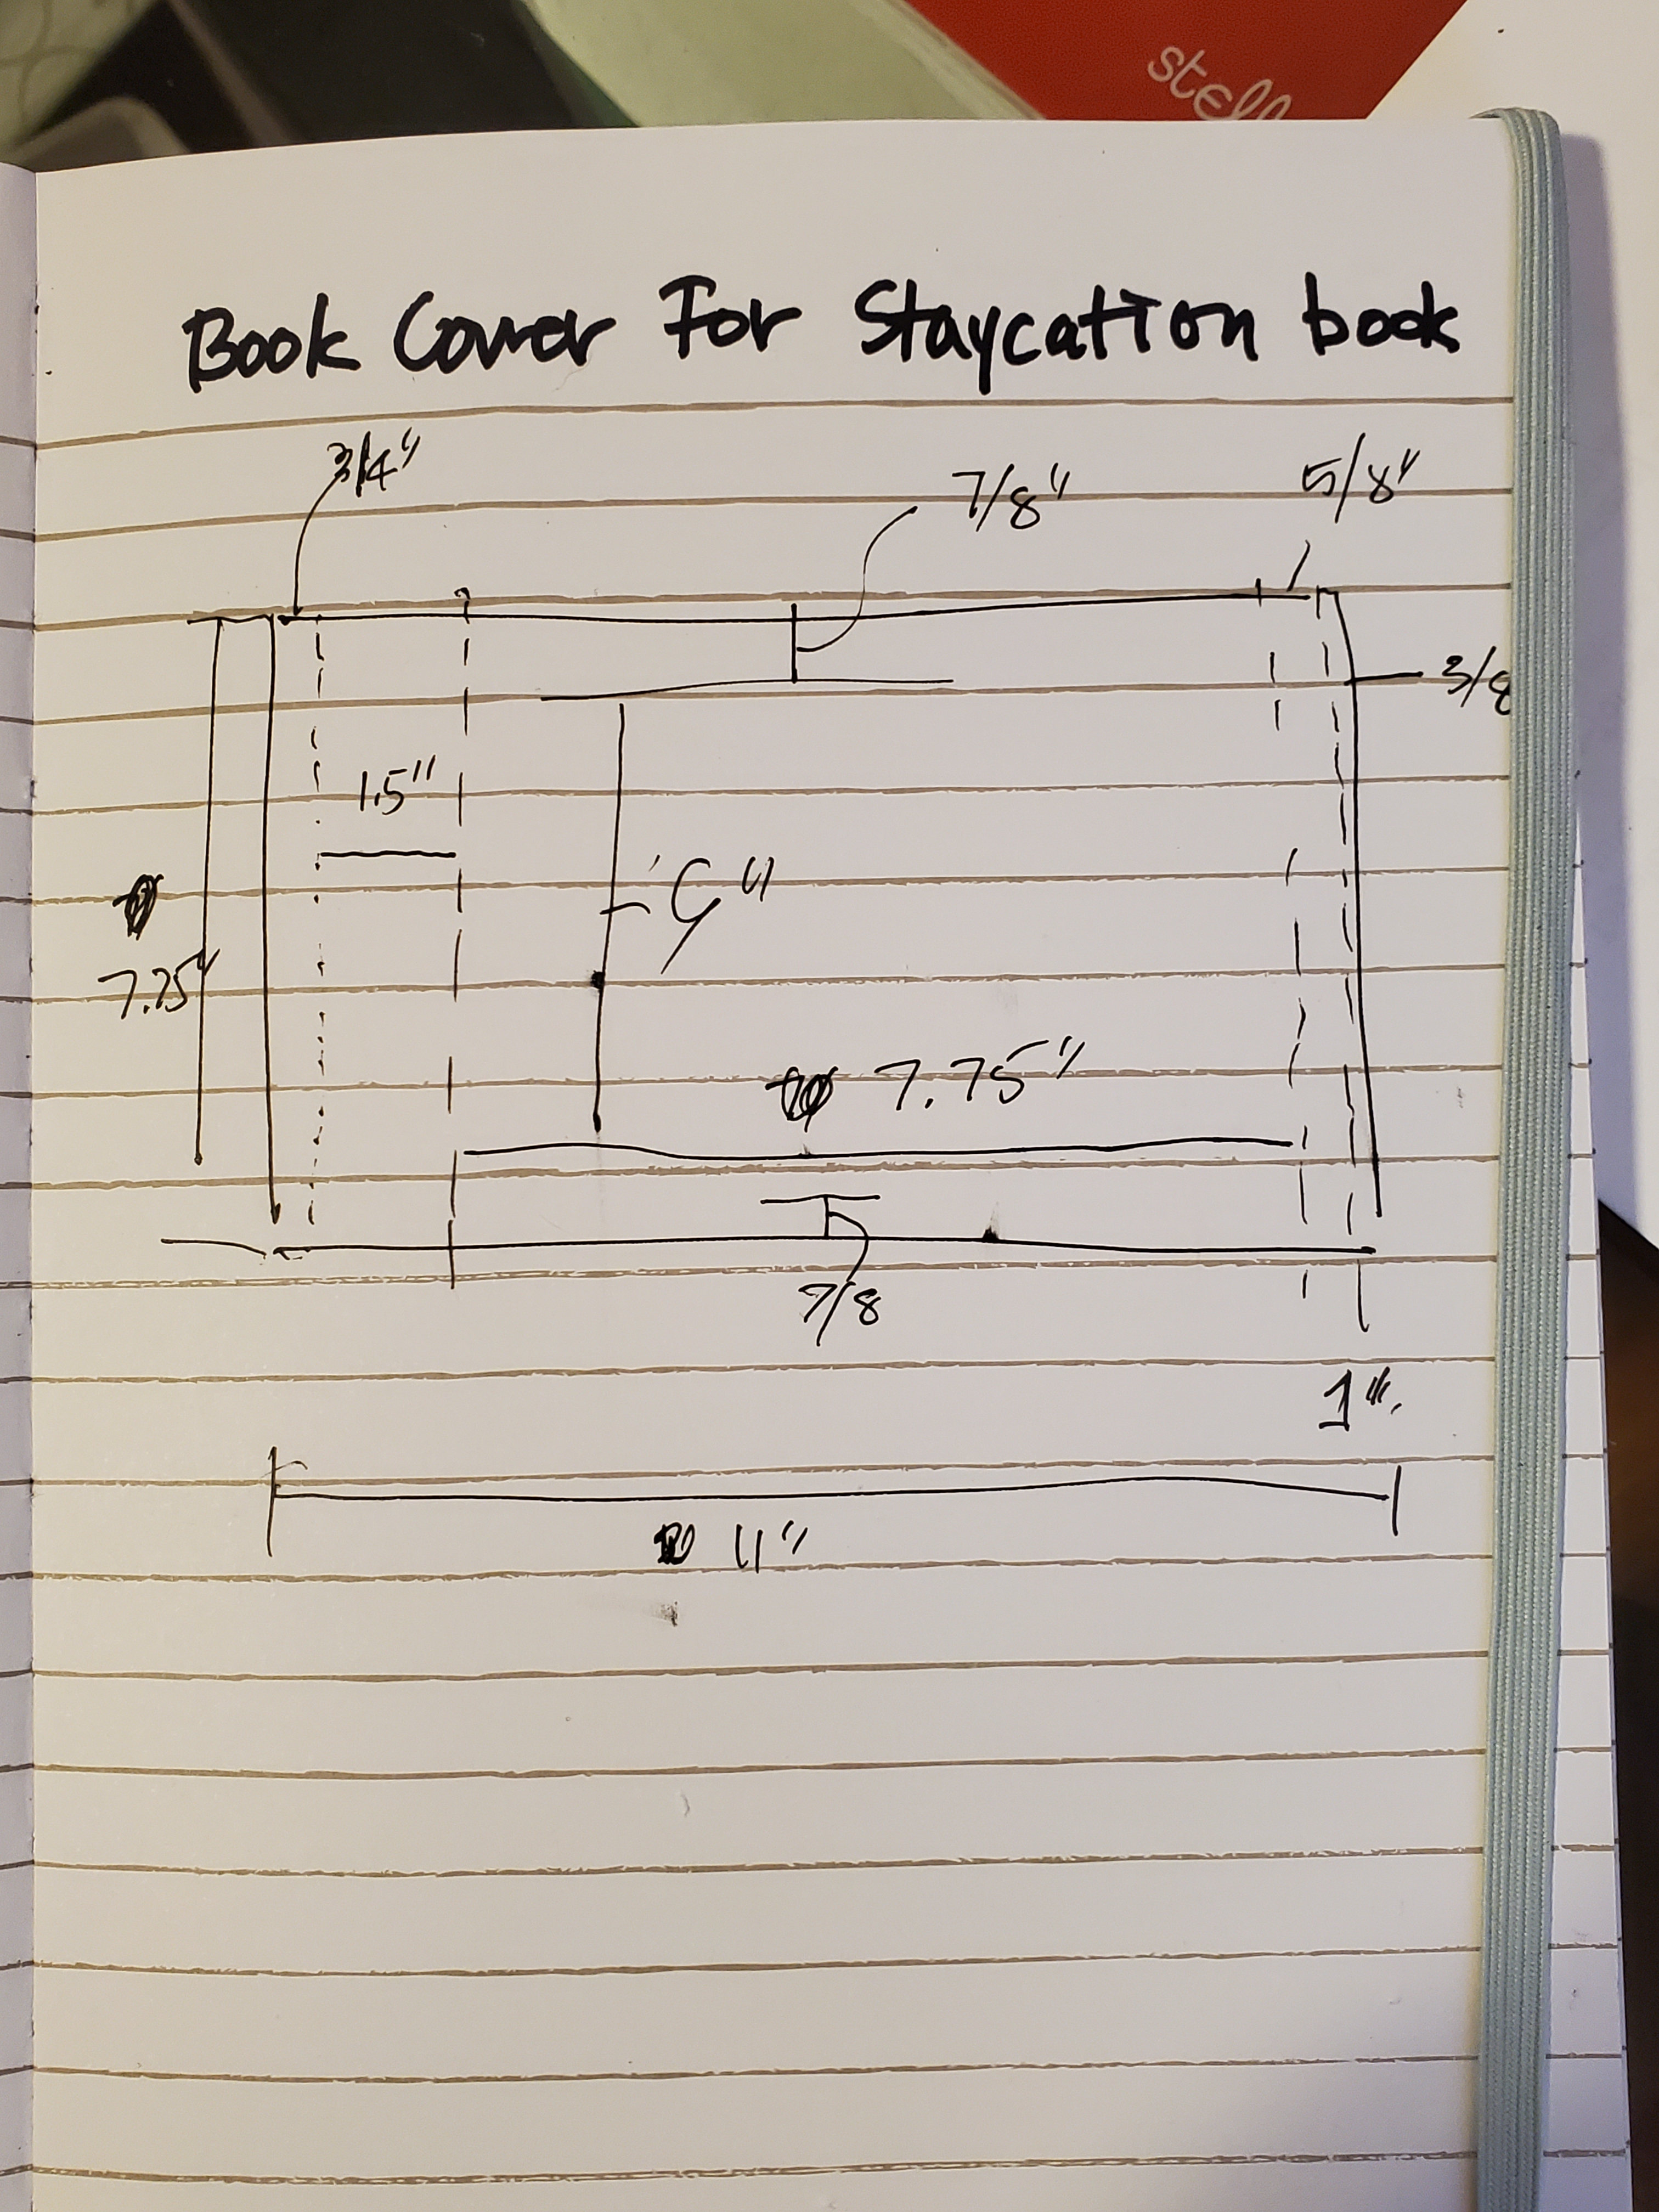 stell
Book Cover For Staycation book
3/4"
7/8"
5/8"
3/8
1.5"
7.75"
7.75"
7/8
1".
11"